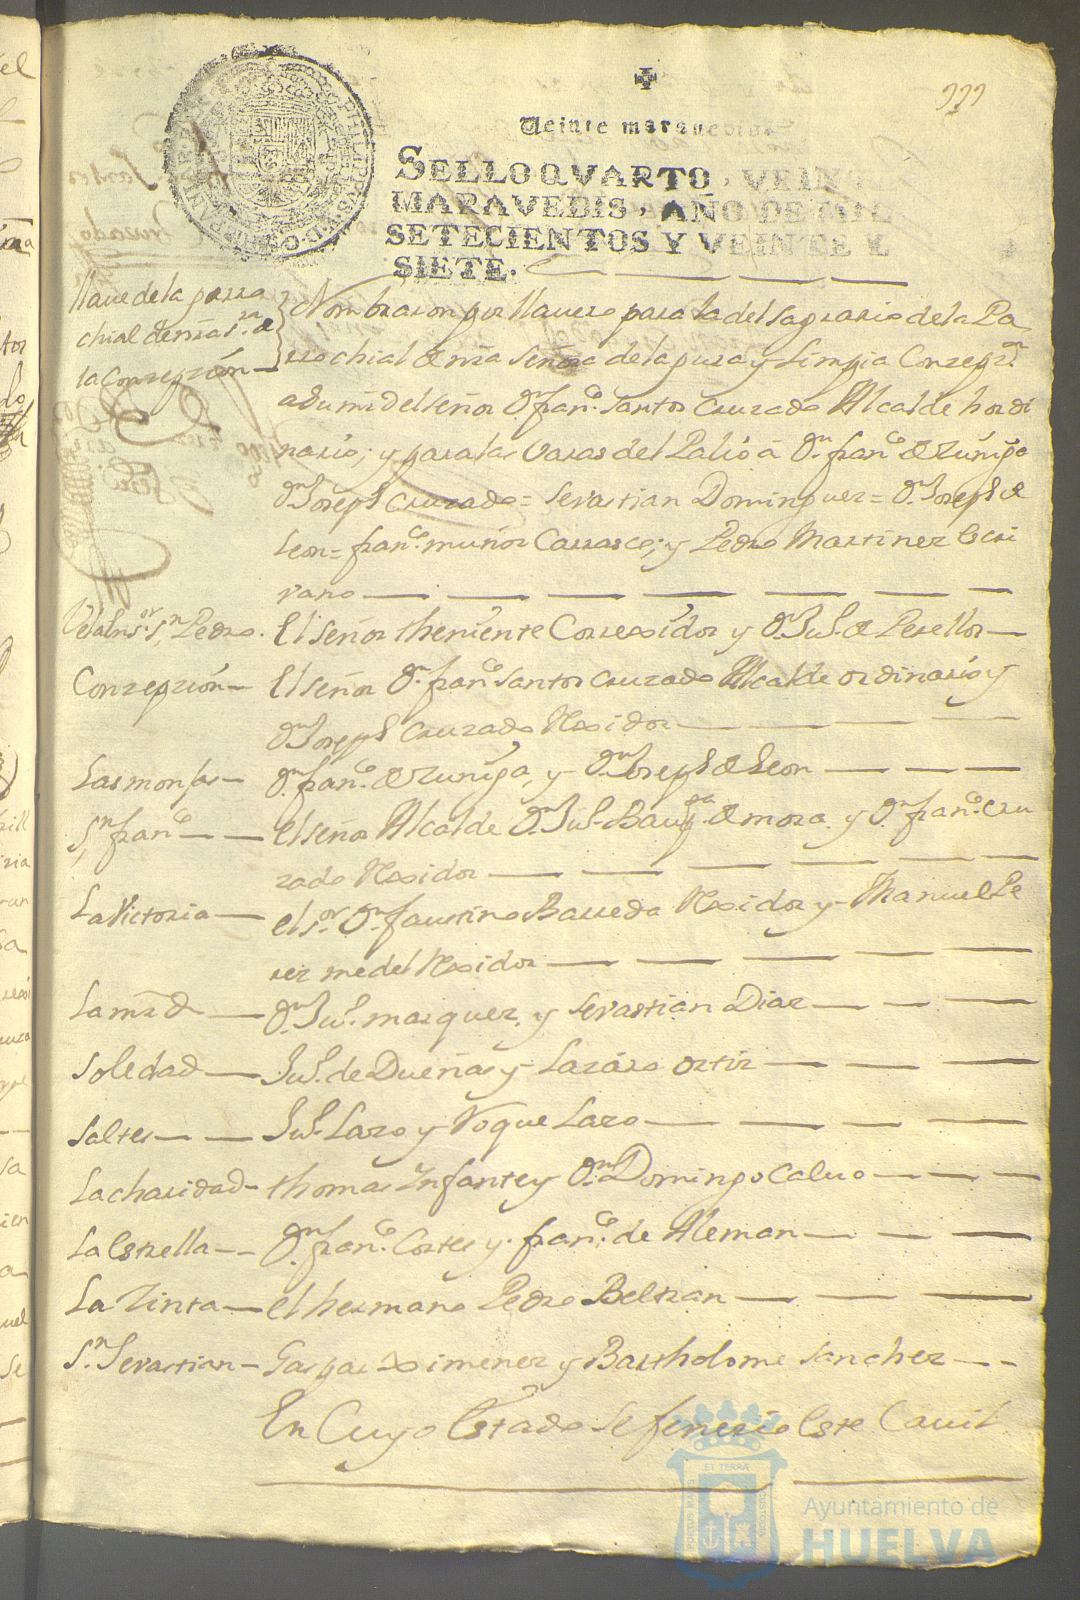 999
Veinte maravedis
SELLO QVARTO, VEINTE
MARAVEDIS, AÑO DE MIL
SETECIENTOS Y VEINTE Y
SIETE.
llaue de la parro
chial de nrã s.ra de
la Conzepzión
Nombraron por llauero para la del sagrario de la Pa
rrochial de nrã señora de la pura y Limpia Conzepz.n
a su md del señor D.n fran.co santos cruzado Alcalde hordi
nario; y para las Varas del Palio â D.n fran.co de zuñiga
D.n Joseph cruzado = sevastian Dominguez = D.n Joseph de
Leon = fran.co muñoz Carrasco; y Pedro Martinez Escri
vano
Vela en s.or s.n Pedro.
El señor theniente Correxidor y D.n Ju.o de Perellos
Conzepzión
El señor D.n fran.co santos cruzado Alcalde ordinario y
D.n Joseph cruzado Rexidor
Las monjas
D.n fran.co de zuñiga, y D.n Joseph de Leon
S.n fran.co
el señor Alcalde D.n Ju.o Baup.ta de mora y D.n fran.co cru
zado Rexidor
La Victoria
el s.or D.n faustino Barreda Rexidor y Manuel Pe
rez medel Rexidor
La mrd
D.n Ju.o marquez, y sevastian Diaz
Soledad
Ju.o de Dueñas y Lazaro ortiz
saltes
Ju.o Lazo y Roque Lazo
La charidad
thomas Infante y D.n Domingo Caluo
La Estrella
D.n fran.co Cortes y fran.co de Aleman
La Zinta
el hermano Pedro Beltran
S.n Sevastian
Gaspar Ximenez y Bartholome sanchez
En Cuyo Estado se fenezio Este Cauil
PORTUS MARIS
ET TERRÆ
CUSTODIA
Ayuntamiento de
HUELVA